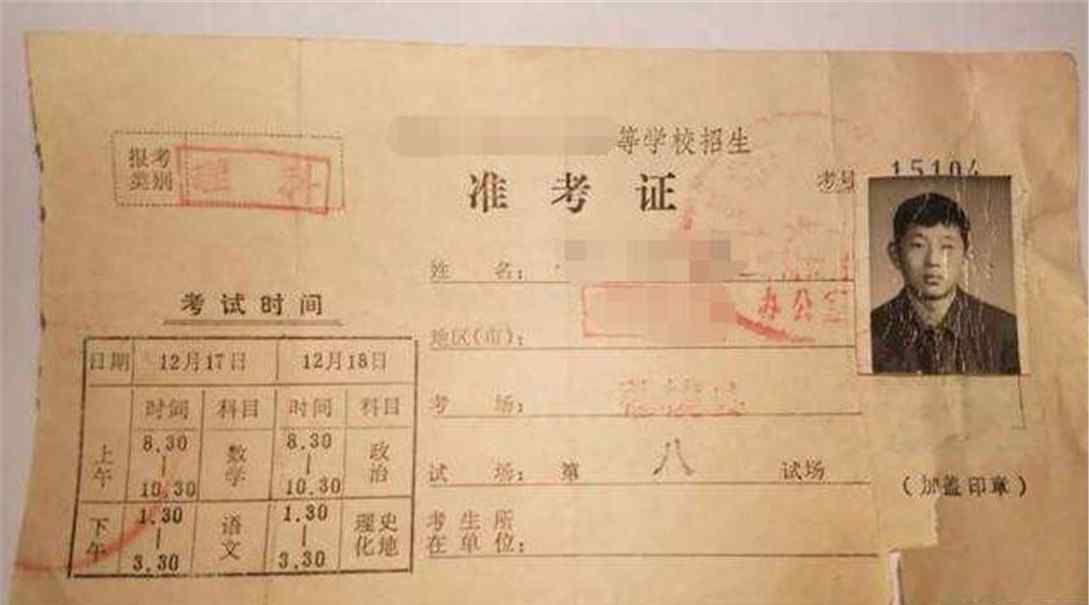 等学校招生
准考证
报考
类别
理科
考号 15104
姓名：
办公室
地区(市)：
考场：
试场：第八试场
考生所
在单位：
(加盖印章)
考试时间
日期 12月17日 12月18日
时间 科目 时间 科目
上午 8.30–10.30 数学 8.30–10.30 政治
下午 1.30–3.30 语文 1.30–3.30 理化 史地